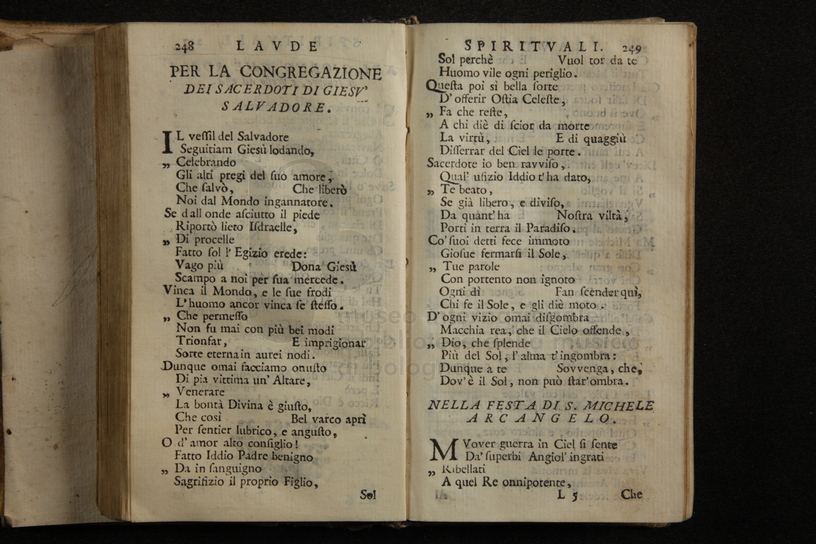 248 LAVDE
PER LA CONGREGAZIONE
DEI SACERDOTI DI GIESV'
SALVADORE.
IL vessil del Salvadore
Seguitiam Giesù lodando,
„ Celebrando
Gli alti pregi del suo amore,
Che salvò, Che liberò
Noi dal Mondo ingannatore.
Se dall onde asciutto il piede
Riportò lieto Isdraelle,
„ Di procelle
Fatto sol l'Egizio erede:
Vago più Dona Giesù
Scampo a noi per sua mercede.
Vinca il Mondo, e le sue frodi
L'huomo ancor vinca se stesso.
„ Che permesso
Non fu mai con più bei modi
Trionfar, E imprigionar
Sorte eterna in aurei nodi.
Dunque omai facciamo onusto
Di pia vittima un' Altare,
„ Venerare
La bontà Divina è giusto,
Che così Bel varco aprì
Per sentier lubrico, e angusto,
O d'amor alto consiglio!
Fatto Iddio Padre benigno
„ Da in sanguigno
Sagrifizio il proprio Figlio,
Sol
SPIRITVALI. 249
Sol perchè Vuol tor da te
Huomo vile ogni periglio.
Questa poi sì bella sorte
D'offerir Ostia Celeste,
„ Fa che reste,
A chi diè di scior da morte
La virtù, E di quaggiù
Disserrar del Ciel le porte.
Sacerdote io ben ravviso,
Qual' ufizio Iddio t'ha dato,
„ Te beato,
Se già libero, e diviso,
Da quant'ha Nostra viltà,
Porti in terra il Paradiso.
Co' suoi detti fece immoto
Giosue fermarsi il Sole,
„ Tue parole
Con portento non ignoto
Ogni dì Fan scender quì,
Chi fe il Sole, e gli diè moto.
D'ogni vizio omai disgombra
Macchia rea, che il Cielo offende,
„ Dio, che splende
Più del Sol, l'alma t'ingombra:
Dunque a te Sovvenga, che,
Dov'è il Sol, non può star'ombra.
NELLA FESTA DI S. MICHELE
ARCANGELO.
MVover guerra in Ciel si sente
Da' superbi Angiol' ingrati
„ Ribellati
A quel Re onnipotente,
L 5 Che